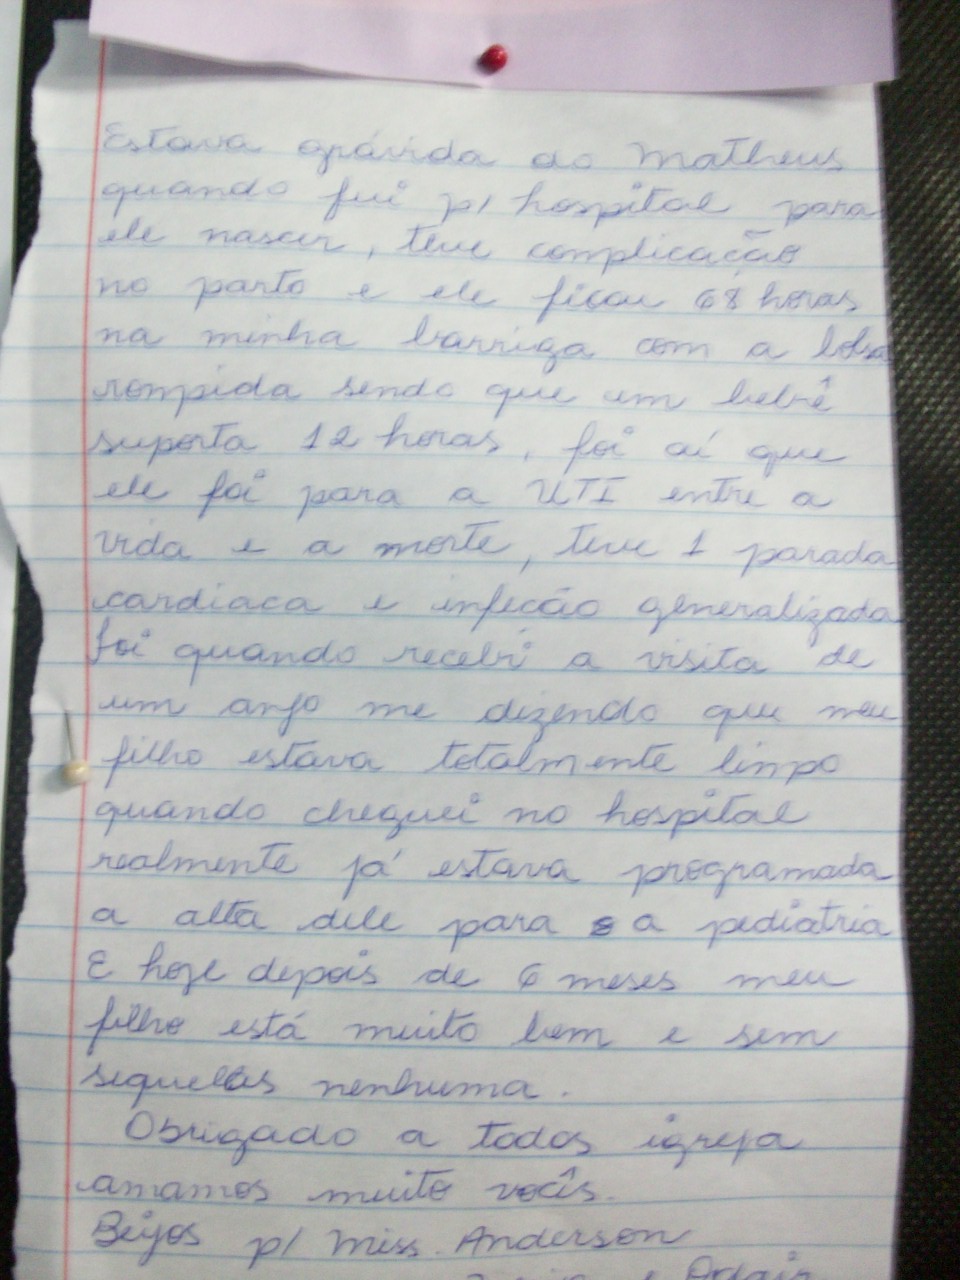 Estava grávida do Matheus
quando fui p/ hospital para
ele nascer, teve complicação
no parto e ele ficou 68 horas
na minha barriga com a bolsa
rompida sendo que um bebê
suporta 12 horas, foi aí que
ele foi para a UTI entre a
vida e a morte, teve 1 parada
cardiaca e infecão generalizada
foi quando recebi a visita de
um anjo me dizendo que meu
filho estava totalmente limpo
quando cheguei no hospital
realmente já estava programada
a alta dele para a pediatria
E hoje depois de 6 meses meu
filho está muito bem e sem
sequelas nenhuma.
Obrigado a todos igreja
amamos muito vocês.
Beijos p/ Miss. Anderson
e